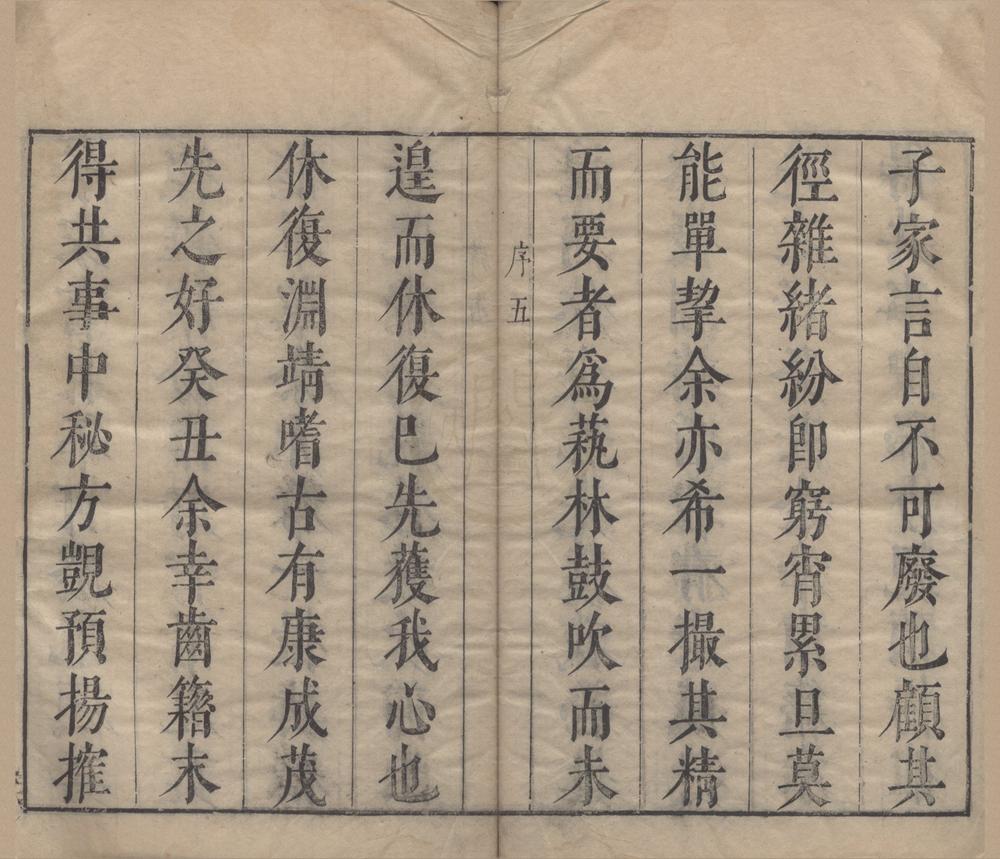 子家言自不可廢也顧其
徑雜緒紛卽窮宵累旦莫
能單挈余亦希一撮其精
而要者爲蓺林鼓吹而未
序五
遑而休復已先獲我心也
休復淵靖嗜古有康成茂
先之好癸丑余幸齒籍末
得共事中秘方覬預揚搉